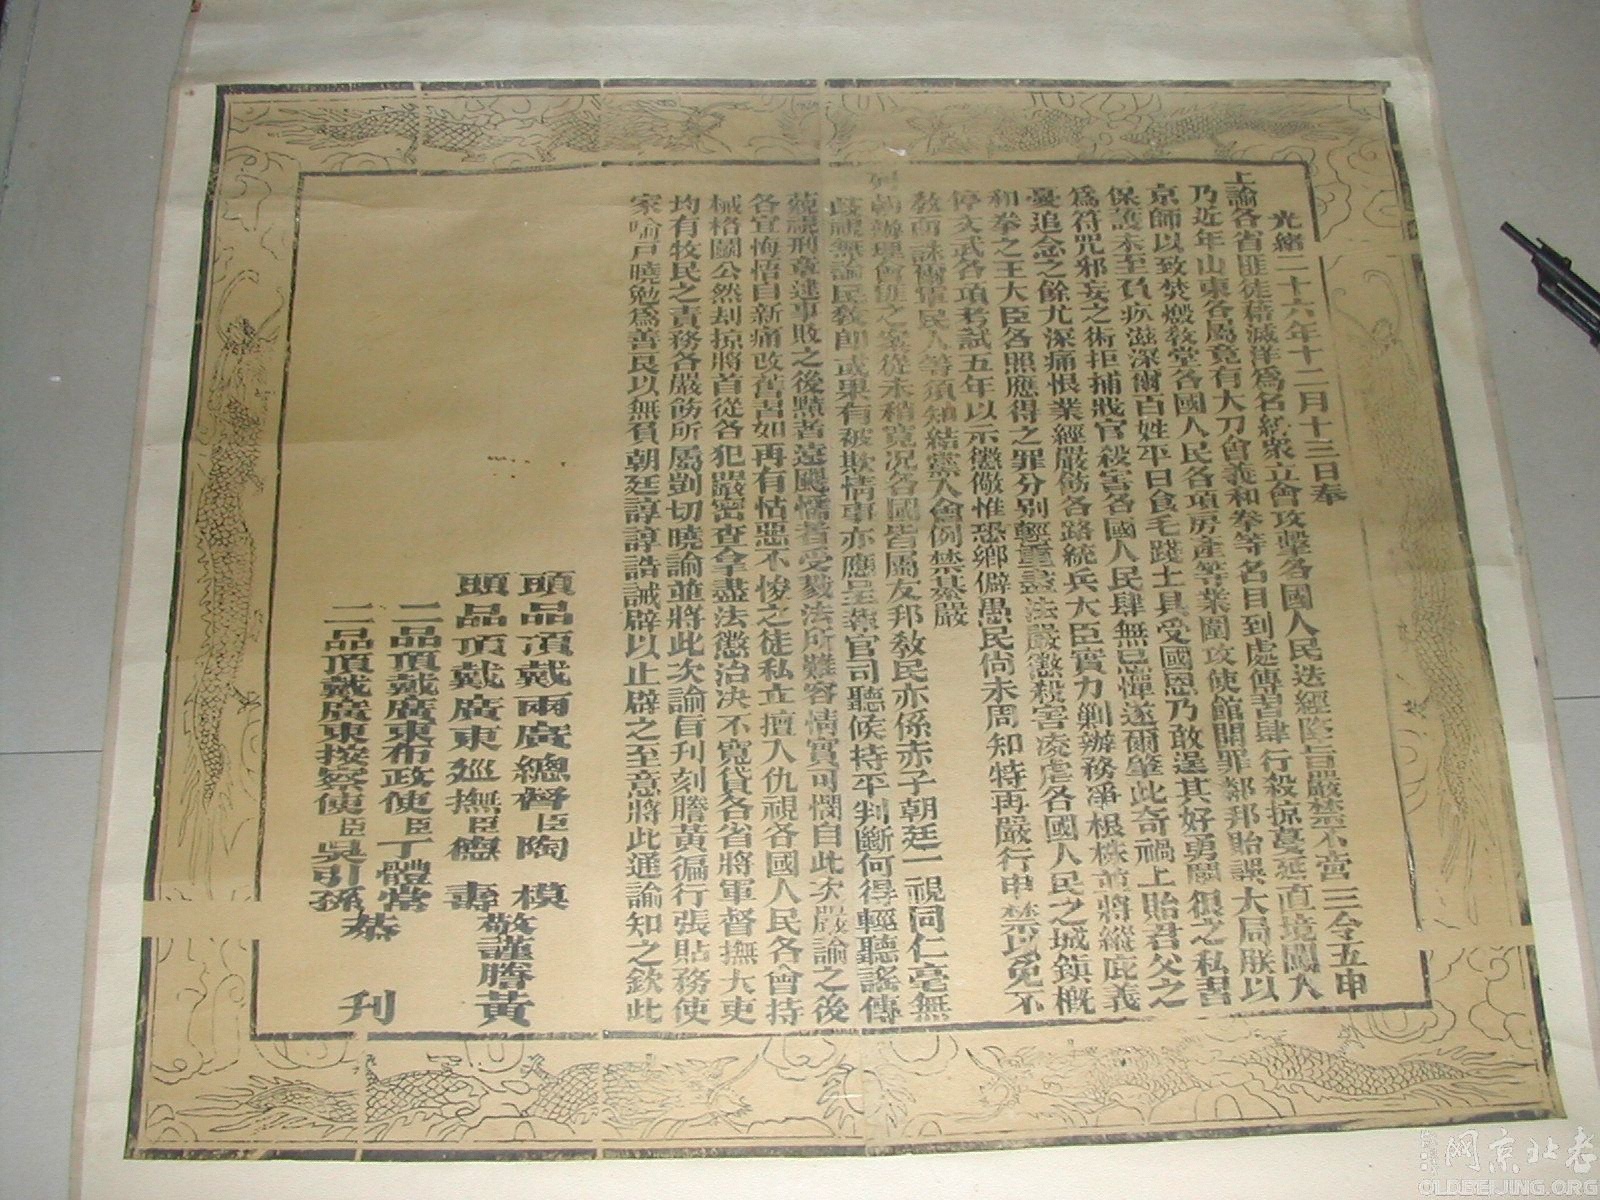 光緒二十六年十二月十三日奉
上諭各省匪徒藉滅洋爲名結衆立會攻擊各國人民迭經降旨嚴禁不啻三令五申
乃近年山東各屬竟有大刀會義和拳等名目到處傳習肆行殺掠蔓延直境闌入
京師以致焚燬教堂各國人民各項房產等業圍攻使館開罪鄰邦貽誤大局朕以
保護未至負疚滋深爾百姓平日食毛踐土具受國恩乃敢逞其好勇鬬狠之私習
爲符咒邪妄之術拒捕戕官殺害各國人民肆無忌憚遂爾肇此奇禍上貽君父之
憂追念之餘尤深痛恨業經嚴飭各路統兵大臣實力剿辦務凈根株並將縱庇義
和拳之王大臣各照應得之罪分別輕重盡法嚴懲殺害凌虐各國人民之城鎮概
停文武各項考試五年以示懲儆惟恐鄉僻愚民尚未周知特再嚴行申禁以免不
教而誅爾軍民人等須知結黨入會例禁綦嚴
列朝辦理會匪之案從未稍寬况各國皆屬友邦教民亦係赤子朝廷一視同仁毫無
歧視無論民教即或果有被欺情事亦應呈報官司聽候持平判斷何得輕聽謠傳
藐視刑章逮事敗之後黠者遠颺懦者受戮法所難容情實可憫自此次嚴諭之後
各宜悔悟自新痛改舊習如再有怙惡不悛之徒私立擅入仇視各國人民各會持
械格鬬公然刦掠將首從各犯嚴密查拿盡法懲治决不寬貸各省將軍督撫大吏
均有牧民之責務各嚴飭所屬剴切曉諭並將此次諭旨刊刻謄黃徧行張貼務使
家喻戶曉勉爲善良以無負朝廷諄諄誥誡辟以止辟之至意將此通諭知之欽此
頭品頂戴兩廣總督臣陶模
頭品頂戴廣東巡撫臣德壽
敬謹謄黃
二品頂戴廣東布政使臣丁體常
二品頂戴廣東按察使臣吳引孫
恭刊
老北京网
OLDBEIJING.ORG